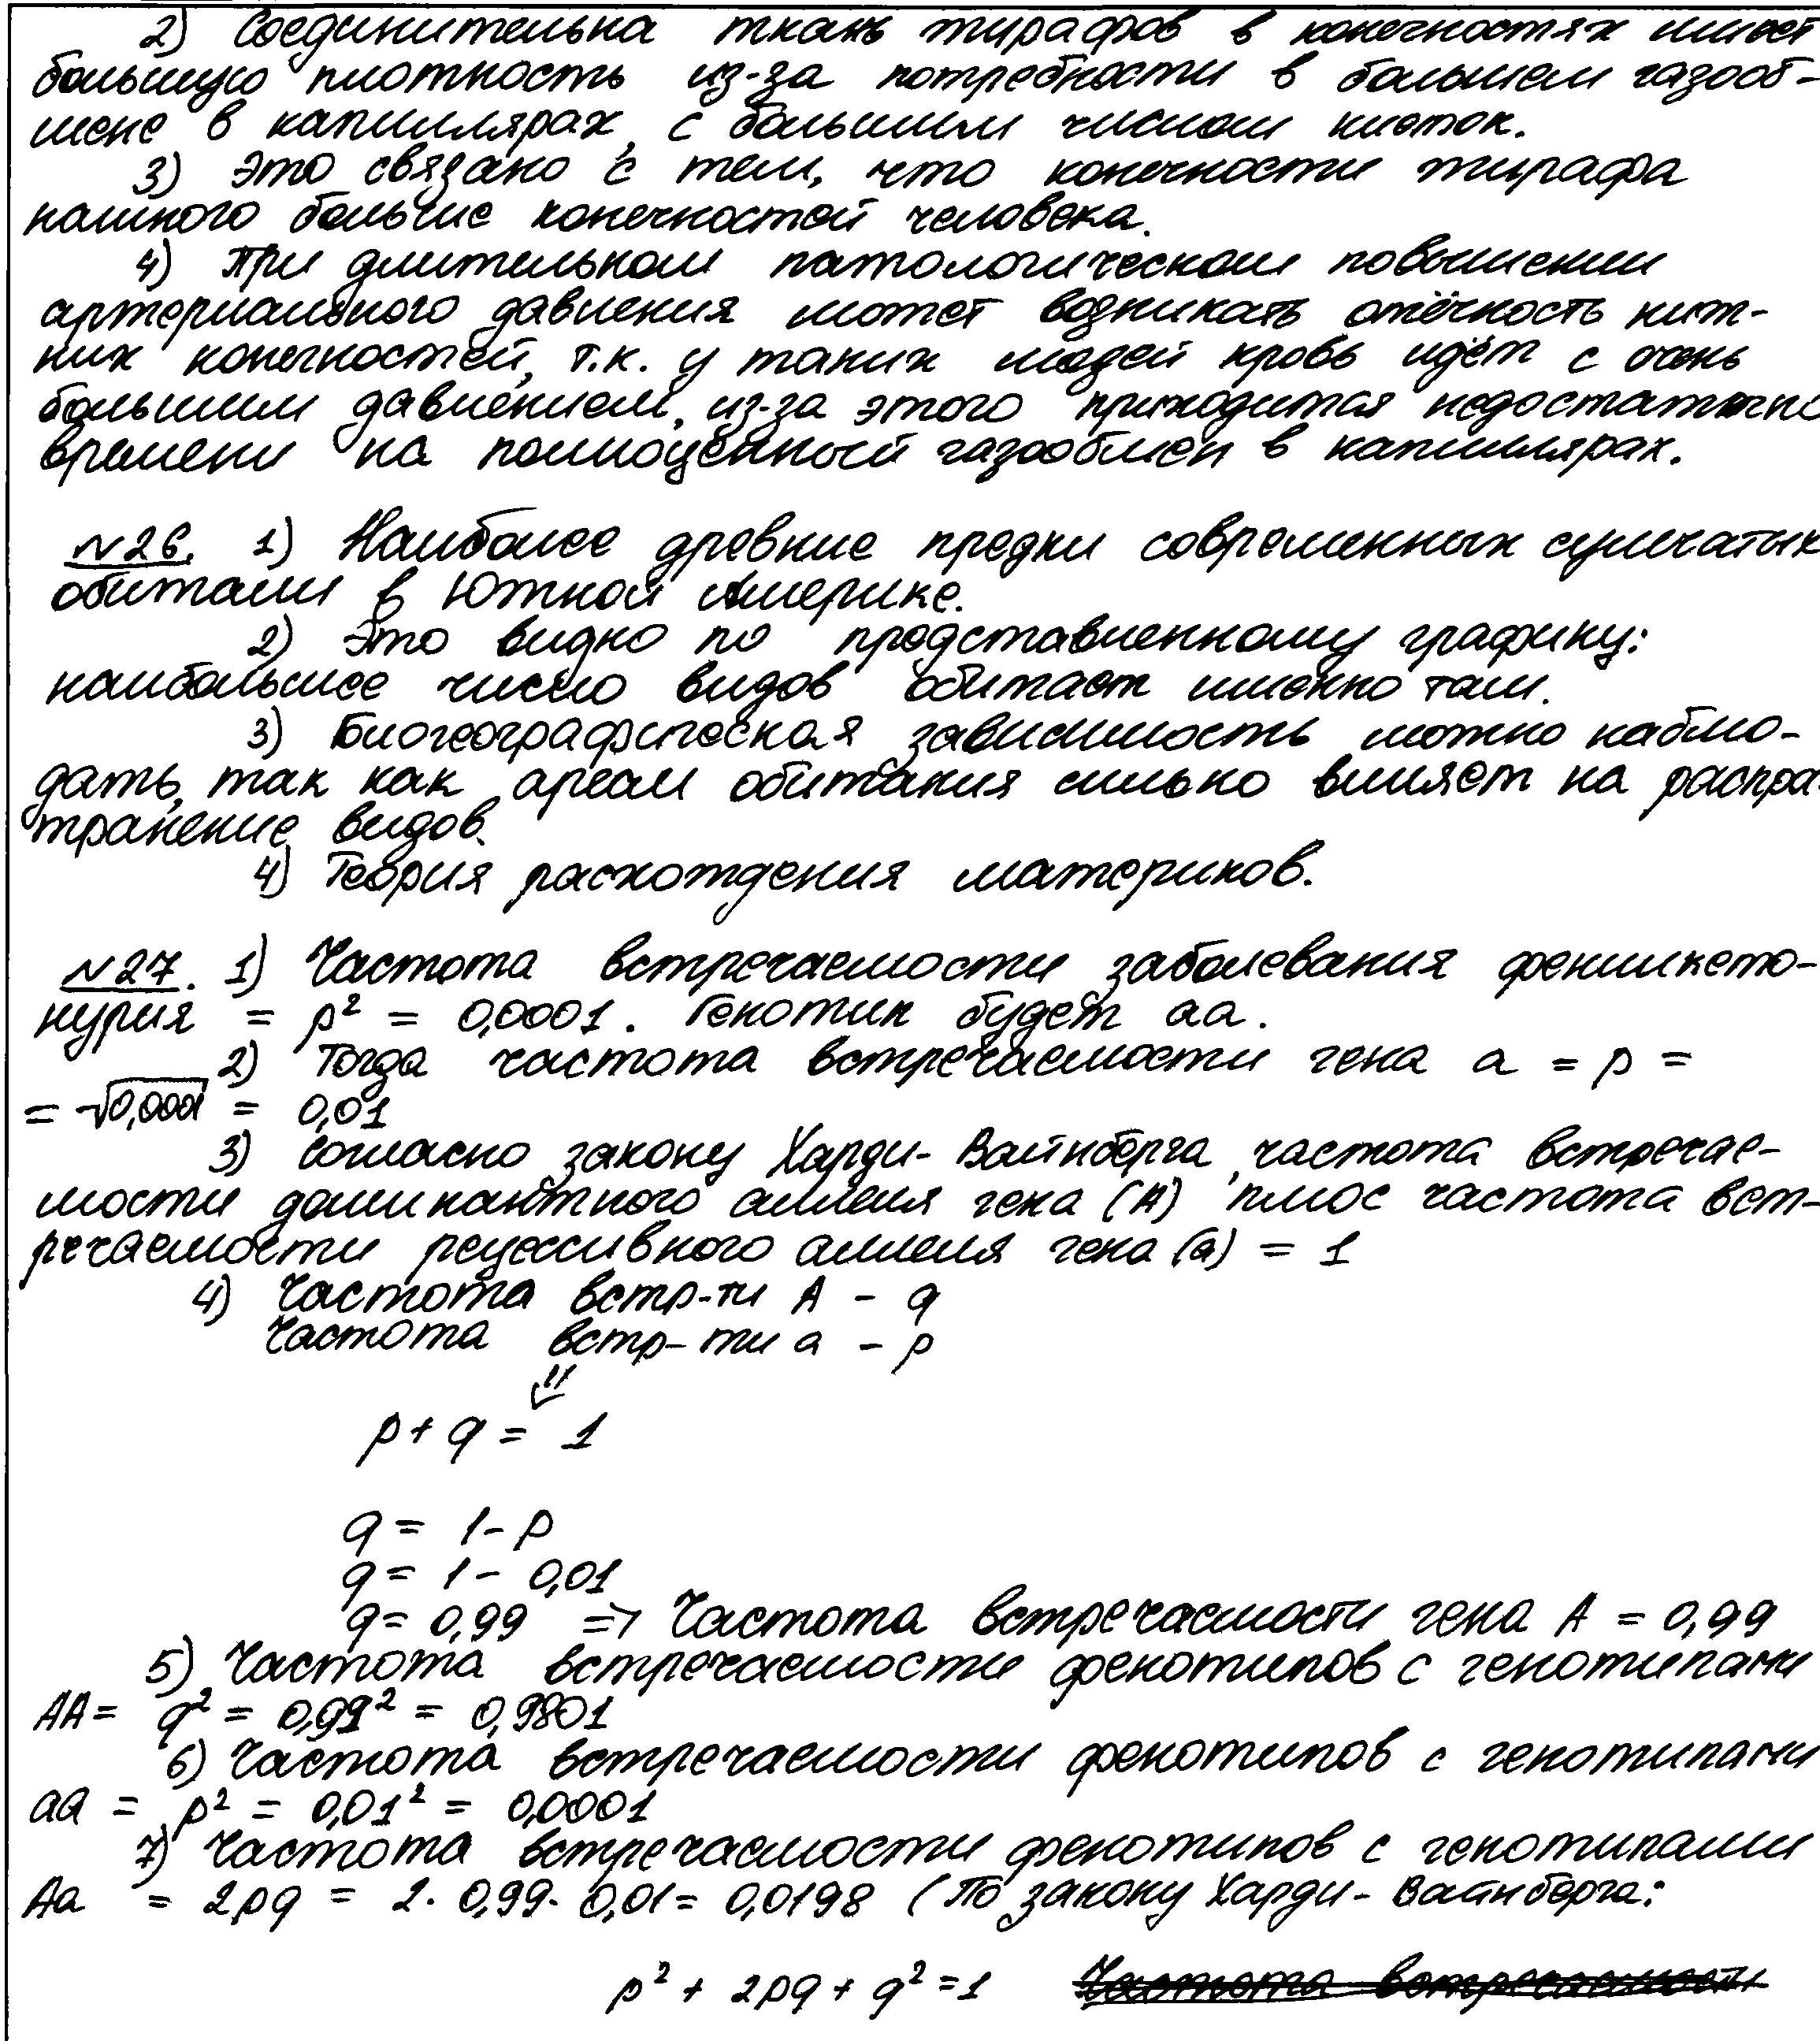 2) Соединительна ткань жирафов в конечностях имеет
большую плотность из-за потребности в большем газооб-
мене в капиллярах, с большим числом клеток.
3) Это связано с тем, что конечности жирафа
намного больше конечностей человека.
4) При длительном патологическом повышении
артериального давления может возникать отёчность ниж-
них конечностей, т.к. у таких людей кровь идёт с очень
большим давлением, из-за этого приходится недостаточно
времени на полноценный газообмен в капиллярах.
№26. 1) Наиболее древние предки современных сумчатых
обитали в Южной Америке.
2) Это видно по представленному графику:
наибольшее число видов обитает именно там.
3) Биогеографическая зависимость можно наблю-
дать, так как ареал обитания сильно влияет на распро-
транение видов.
4) Теория расхождения материков.
№27. 1) Частота встречаемости заболевания фенилкето-
нурия = p² = 0,0001. Генотип будет aa.
2) Тогда частота встречаемости гена a = p =
= √0,0001 = 0,01
3) Согласно закону Харди-Вайнберга, частота встречае-
мости доминантного аллеля гена (А) плюс частота вст-
речаемости рецессивного аллеля гена (а) = 1
4) Частота встр-ти А - q
Частота встр-ти а - p
⇓
p + q = 1
q = 1 - p
q = 1 - 0,01
q = 0,99 => Частота встречаемости гена А = 0,99
5) Частота встречаемости фенотипов с генотипами
АА = q² = 0,99² = 0,9801
6) Частота встречаемости фенотипов с генотипами
аа = p² = 0,01² = 0,0001
7) Частота встречаемости фенотипов с генотипами
Аа = 2pq = 2 · 0,99 · 0,01 = 0,0198 (По закону Харди-Вайнберга:
p² + 2pq + q² = 1 Частота встречаемости